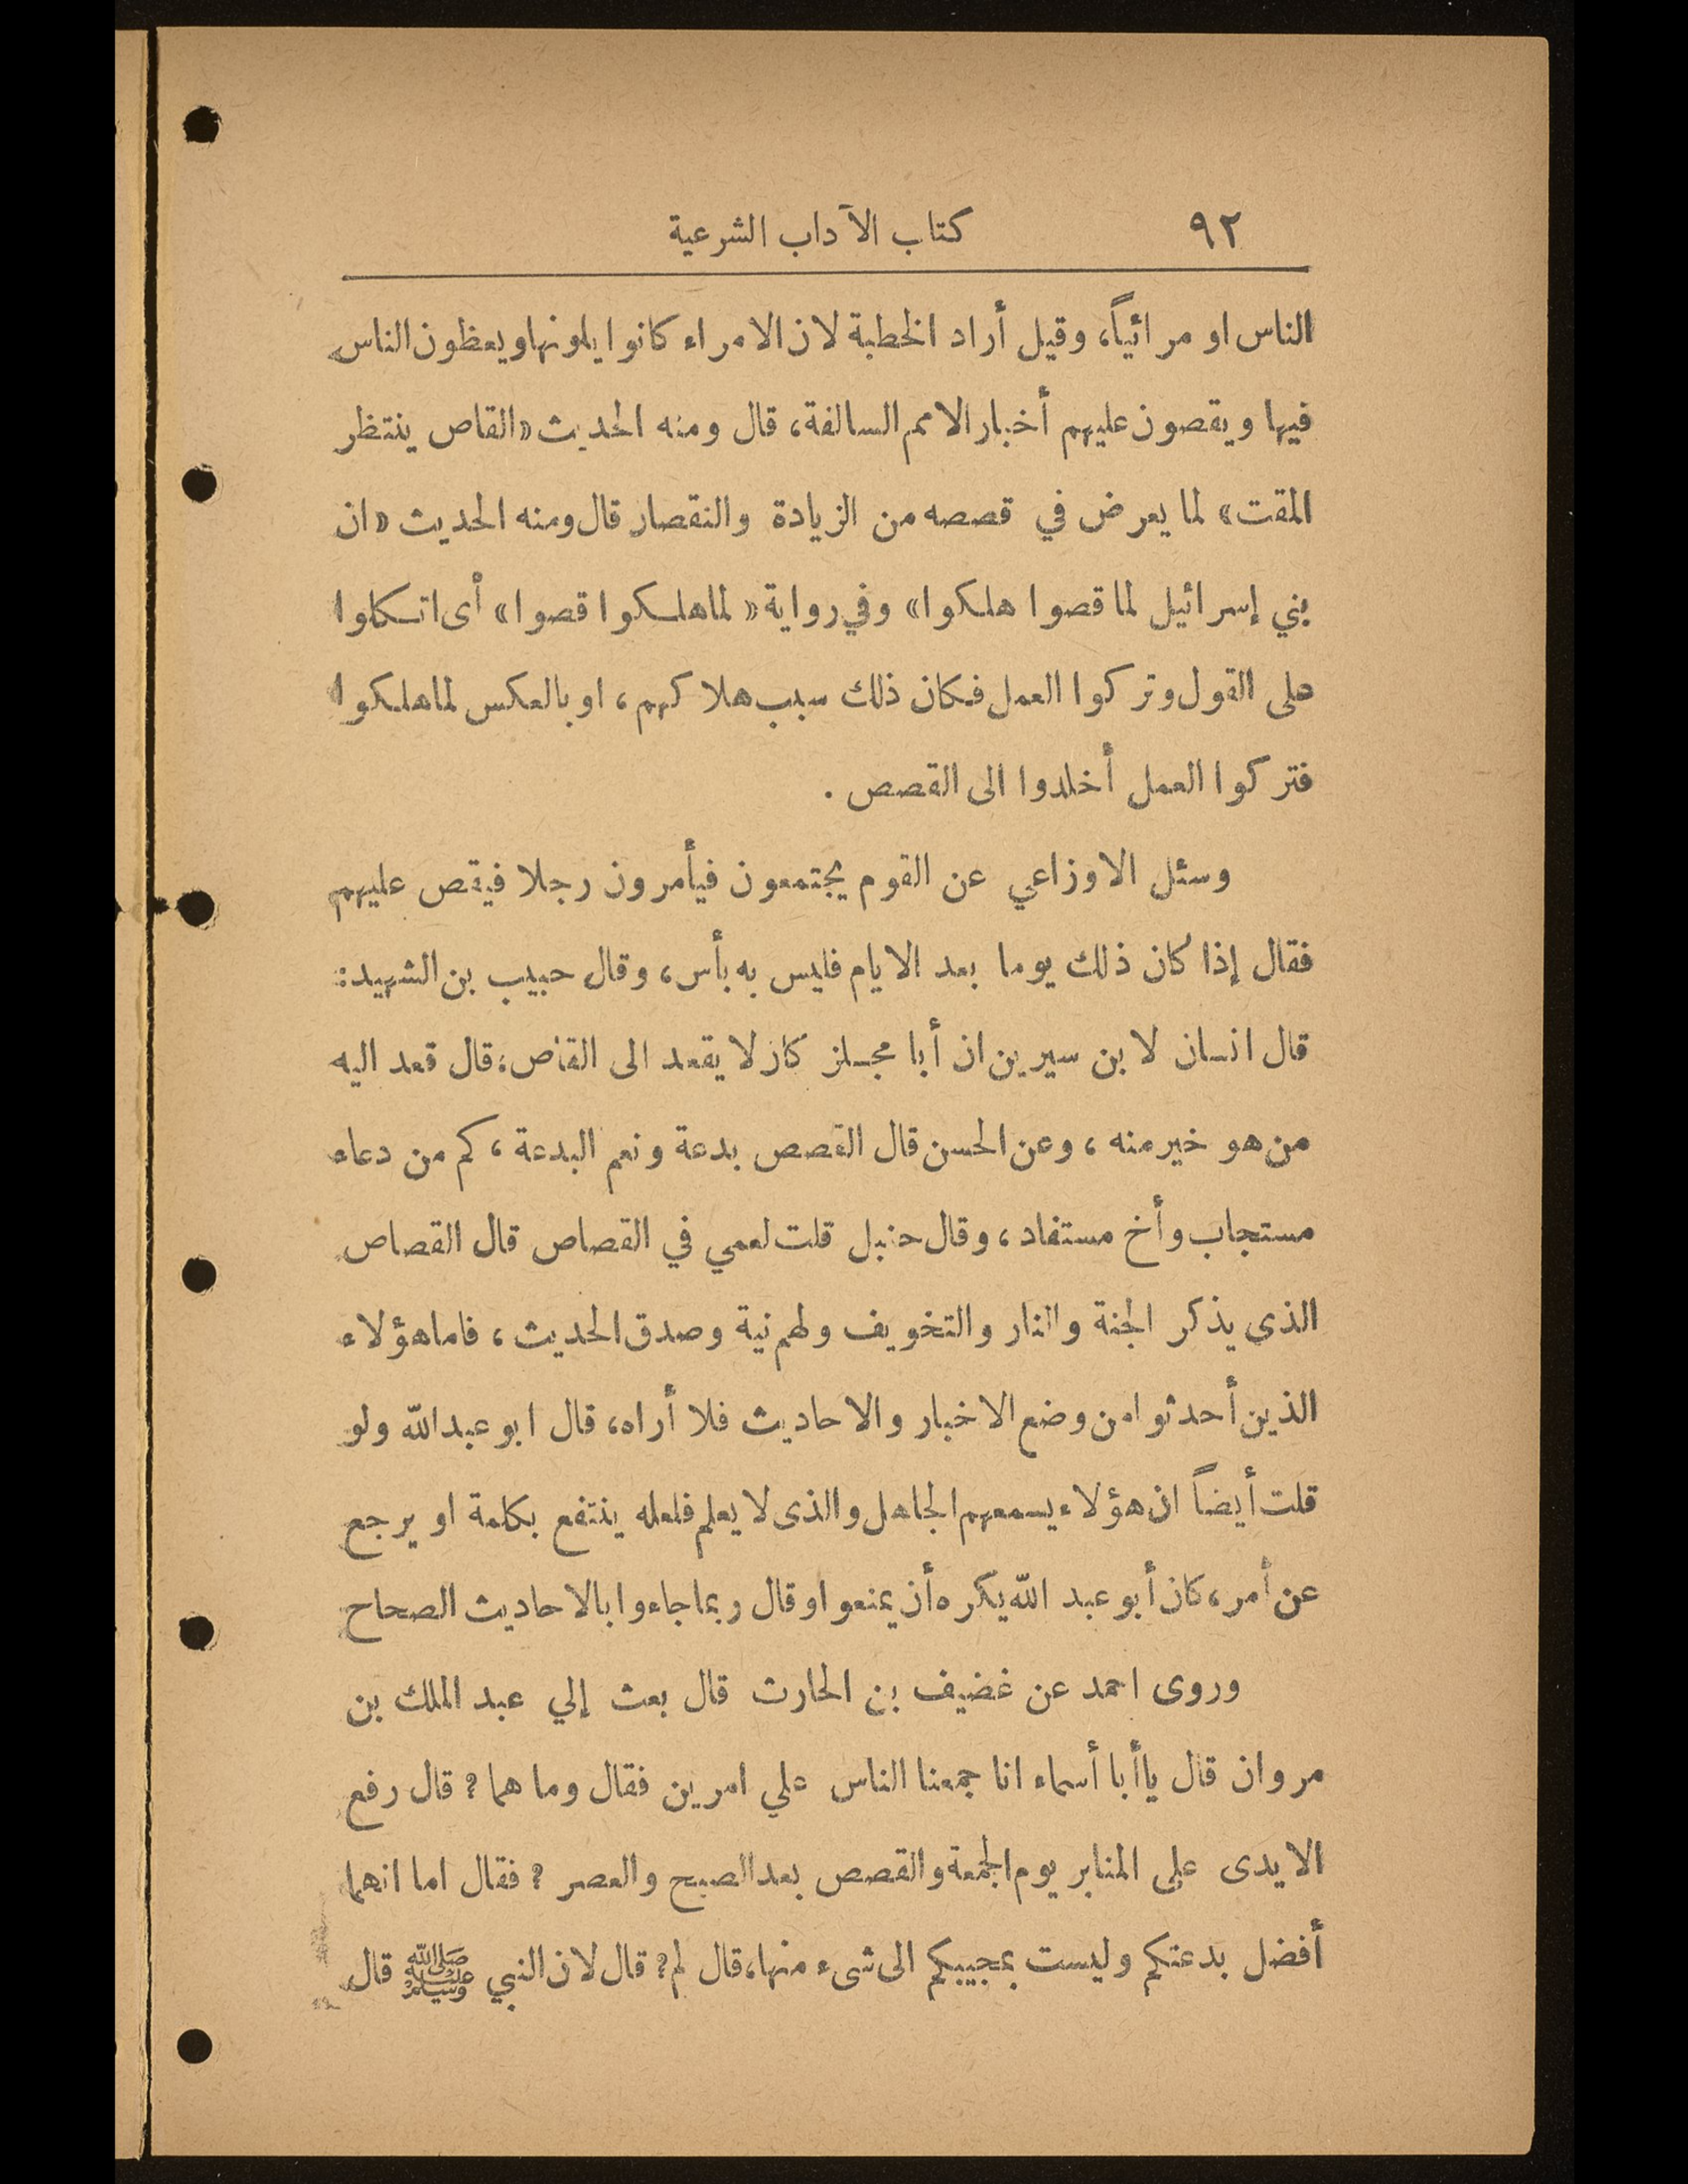 ٩٢ كتاب الآداب الشرعية
الناس او مرائياً، وقيل أراد الخطبة لان الامراء كانوا يلونها ويعظون الناس
فيها ويقصون عليهم أخبار الامم السالفة، قال ومنه الحديث «القاص ينتظر
المقت» لما يعرض في قصصه من الزيادة والنقصان قال ومنه الحديث «ان
بني إسرائيل لما قصوا هلكوا» وفي رواية «لما هلكوا قصوا» أى اتكلوا
على القول وتركوا العمل فكان ذلك سبب هلاكهم، او بالعكس لما هلكوا
فتركوا العمل أخلدوا الى القصص .
وسئل الاوزاعي عن القوم يجتمعون فيأمرون رجلا فيقص عليهم
فقال إذا كان ذلك يوما بعد الايام فليس به بأس، وقال حبيب بن الشهيد:
قال انسان لابن سيرين ان أبا مجلز كان لا يقعد الى القاص، قال قعد اليه
من هو خير منه ، وعن الحسن قال القصص بدعة ونعم البدعة ، كم من دعاء
مستجاب وأخ مستفاد ، وقال حنبل قلت لعمي في القصاص قال القصاص
الذى يذكر الجنة والنار والتخويف ولهم نية وصدق الحديث ، فاما هؤلاء
الذين أحدثوا من وضع الاخبار والاحاديث فلا أراه، قال ابو عبد الله ولو
قلت أيضاً ان هؤلاء يسمعهم الجاهل والذى لا يعلم فلعله ينتفع بكلمة او يرجع
عن أمر، كان أبو عبد الله يكره أن يمنعوا وقال ربما جاءوا بالاحاديث الصحاح
وروى احمد عن غضيف بن الحارث قال بعث إلي عبد الملك بن
مروان قال يا أبا أسماء انا جمعنا الناس علي امرين فقال وما هما ? قال رفع
الايدى على المنابر يوم الجمعة والقصص بعد الصبح والعصر ? فقال اما انهما
أفضل بدعتكم وليست بمجيبكم الى شىء منها، قال لم? قال لان النبي ﷺ قال